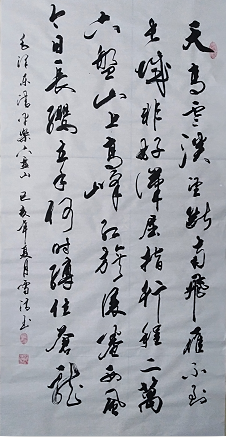 天高云淡望断南飛雁不到
長城非好漢屈指行程二萬
六盤山上高峰红旗漫卷西风
今日長纓在手何时缚住蒼龍
毛泽东清平樂六盘山 己亥年夏月雪